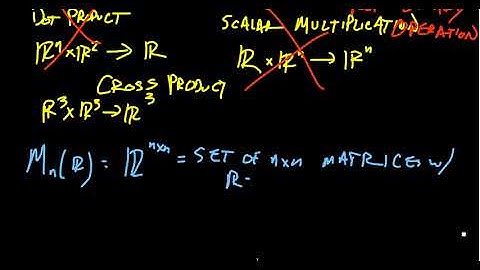 DOT PRODUCT
SCALAR MULTIPLICATION
OPERATION)
ℝⁿ×ℝ² → ℝ
ℝ × ℝⁿ → ℝⁿ
CROSS PRODUCT
ℝ³×ℝ³→ℝ³
Mₙ(ℝ) = ℝⁿˣⁿ = SET OF n×n MATRICES w/
ℝ-